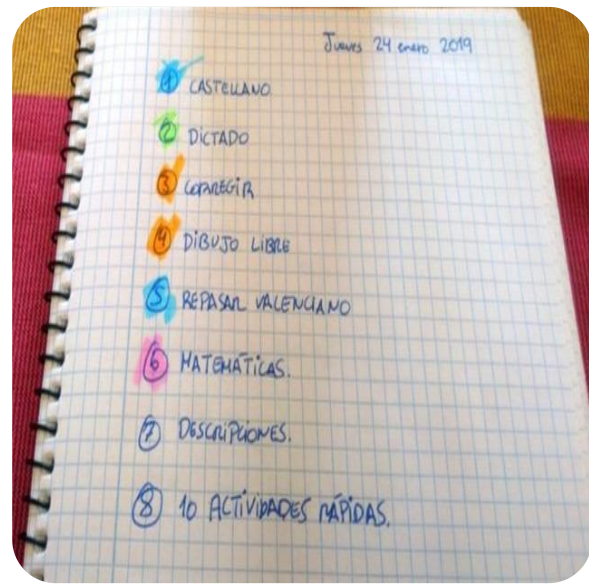 Jueves 24 enero 2019
1 CASTELLANO
2 DICTADO
3 CORREGIR
4 DIBUJO LIBRE
5 REPASAR VALENCIANO
6 MATEMÁTICAS.
7 DESCRIPCIONES.
8 10 ACTIVIDADES RÁPIDAS.